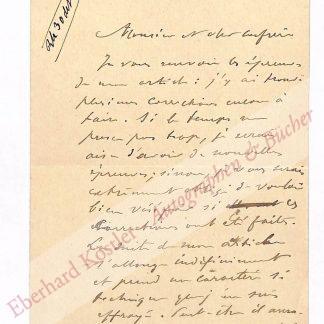 Monsieur et cher confrère
Je vous renvoie les épreuves
de mon article : j'y ai trouvé
plusieurs corrections encore à
faire. Si le temps ne
presse pas trop, je serais
aise d'avoir de nouvelles
épreuves ; sinon je vous serais
extrêmement de vouloir
bien si ces
corrections ont été faites.
La suite de mon article
s'allonge indéfiniment
et prend un caractère si
technique que j'en suis
effrayé. Peut-être il
Eberhard Köstler Autographen & Bücher